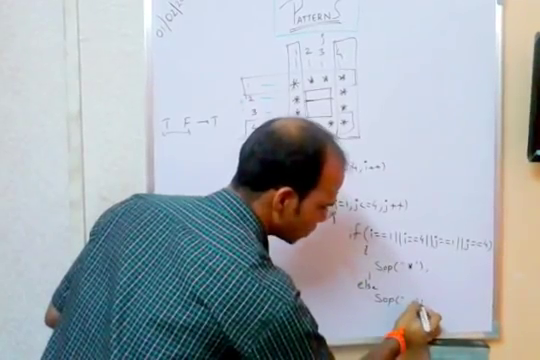 PATTERNS
1 2 3 4
* * *
*
*
* *
3
T F → T
4, i++)
j=1, j<=4, j++)
if(i==1||i==4||j==1||j==4)
{
Sop("*");
}
else
Sop("